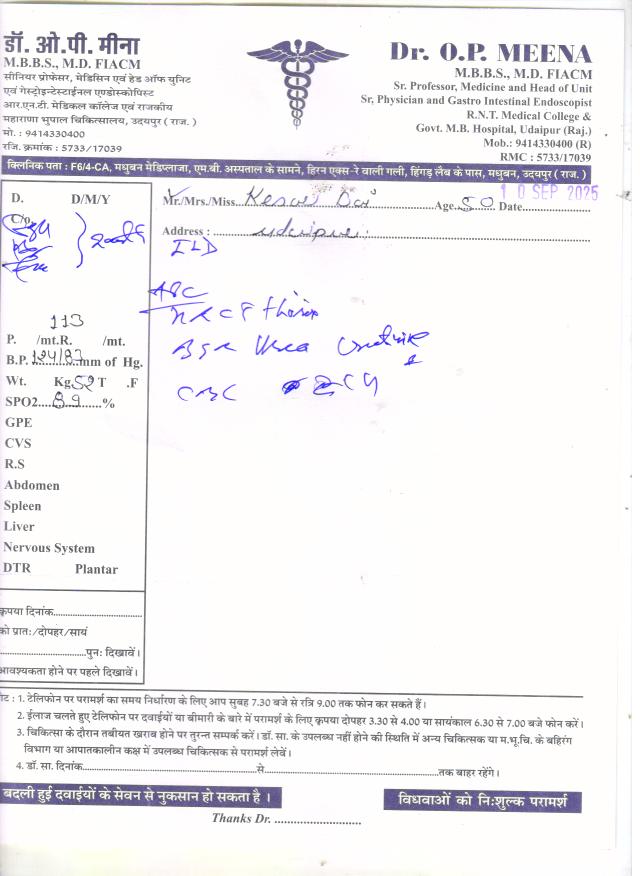 डॉ. ओ.पी. मीना
M.B.B.S., M.D. FIACM
सीनियर प्रोफेसर, मेडिसिन एवं हेड ऑफ युनिट
एवं गेस्ट्रोइन्टेस्टाईनल एण्डोस्कोपिस्ट
आर.एन.टी. मेडिकल कॉलेज एवं राजकीय
महाराणा भुपाल चिकित्सालय, उदयपुर ( राज. )
मो. : 9414330400
रजि. क्रमांक : 5733/17039
Dr. O.P. MEENA
M.B.B.S., M.D. FIACM
Sr. Professor, Medicine and Head of Unit
Sr, Physician and Gastro Intestinal Endoscopist
R.N.T. Medical College &
Govt. M.B. Hospital, Udaipur (Raj.)
Mob.: 9414330400 (R)
RMC : 5733/17039
क्लिनिक पता : F6/4-CA, मधुबन मेडिप्लाजा, एम.बी. अस्पताल के सामने, हिरन एक्स-रे वाली गली, हिंगड़ लैब के पास, मधुबन, उदयपुर ( राज. )
D. D/M/Y
C/o
113
P. /mt.R. /mt.
B.P. 124/83 mm of Hg.
Wt. Kg. 52 T .F
SPO2 89 %
GPE
CVS
R.S
Abdomen
Spleen
Liver
Nervous System
DTR Plantar
कृपया दिनांक
को प्रातः/दोपहर/सायं
पुनः दिखावें।
आवश्यकता होने पर पहले दिखावें।
Mr./Mrs./Miss. Age. 50 Date 10 SEP 2025
Address : udaipur.
ILD
HRCT thorax
BSR Urea Creatinine
CBC ECG
नोट : 1. टेलिफोन पर परामर्श का समय निर्धारण के लिए आप सुबह 7.30 बजे से रात्रि 9.00 तक फोन कर सकते हैं।
2. ईलाज चलते हुए टेलिफोन पर दवाईयों या बीमारी के बारे में परामर्श के लिए कृपया दोपहर 3.30 से 4.00 या सायंकाल 6.30 से 7.00 बजे फोन करें।
3. चिकित्सा के दौरान तबीयत खराब होने पर तुरन्त सम्पर्क करें। डॉ. सा. के उपलब्ध नहीं होने की स्थिति में अन्य चिकित्सक या म.भू.चि. के बहिरंग
विभाग या आपातकालीन कक्ष में उपलब्ध चिकित्सक से परामर्श लेवें।
4. डॉ. सा. दिनांक से तक बाहर रहेंगे।
बदली हुई दवाईयों के सेवन से नुकसान हो सकता है ।
विधवाओं को निःशुल्क परामर्श
Thanks Dr.